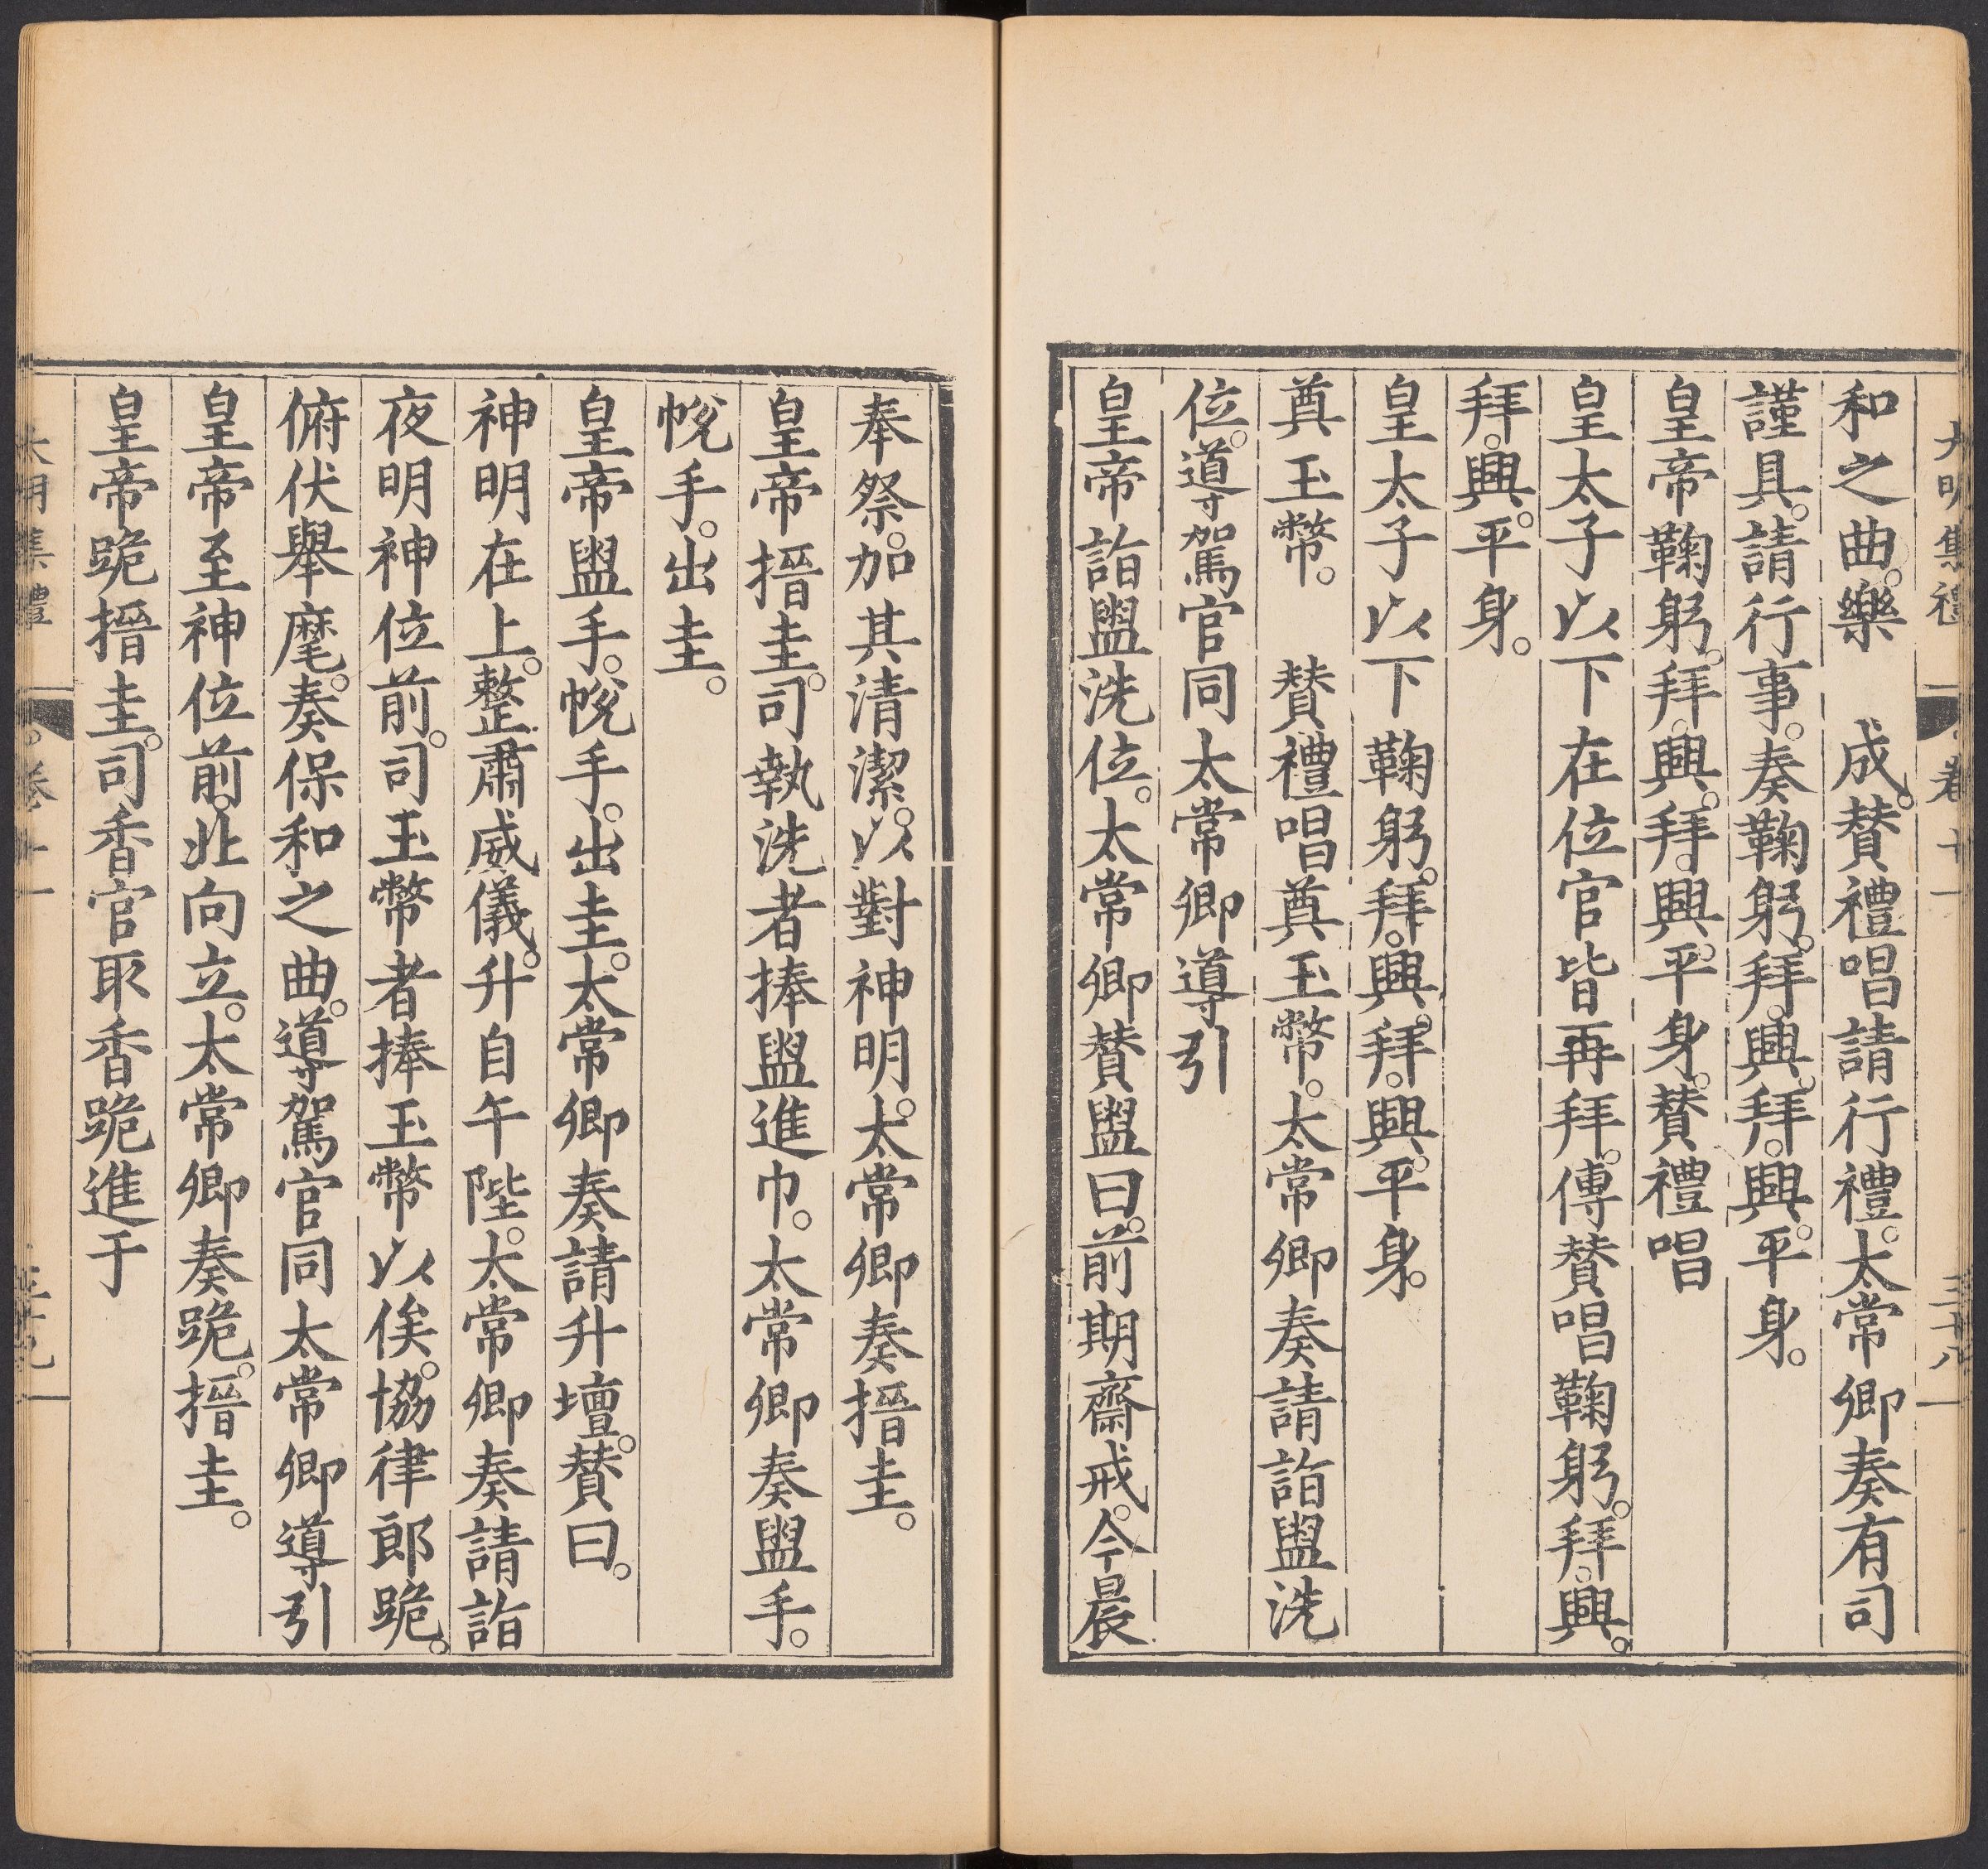 大明集禮 卷十一 三十八
和之曲。樂　成。贊禮唱請行禮。太常卿奏有司
謹具。請行事。奏鞠躬。拜。興。拜。興。平身。
皇帝鞠躬。拜。興。拜。興。平身。贊禮唱
皇太子以下在位官皆再拜。傳贊唱鞠躬。拜。興。
拜。興。平身。
皇太子以下鞠躬。拜。興。拜。興。平身。
奠玉幣。　贊禮唱奠玉幣。太常卿奏請詣盥洗
位。導駕官同太常卿導引
皇帝詣盥洗位。太常卿贊盥曰。前期齋戒。今晨
奉祭。加其清潔。以對神明。太常卿奏搢圭。
皇帝搢圭。司執洗者捧盥進巾。太常卿奏盥手。
帨手。出圭。
皇帝盥手。帨手。出圭。太常卿奏請升壇。贊曰。
神明在上。整肅威儀。升自午陛。太常卿奏請詣
夜明神位前。司玉幣者捧玉幣以俟。協律郎跪。
俯伏舉麾。奏保和之曲。導駕官同太常卿導引
皇帝至神位前。北向立。太常卿奏跪。搢圭。
皇帝跪搢圭。司香官取香跪進于
大明集禮 卷十一